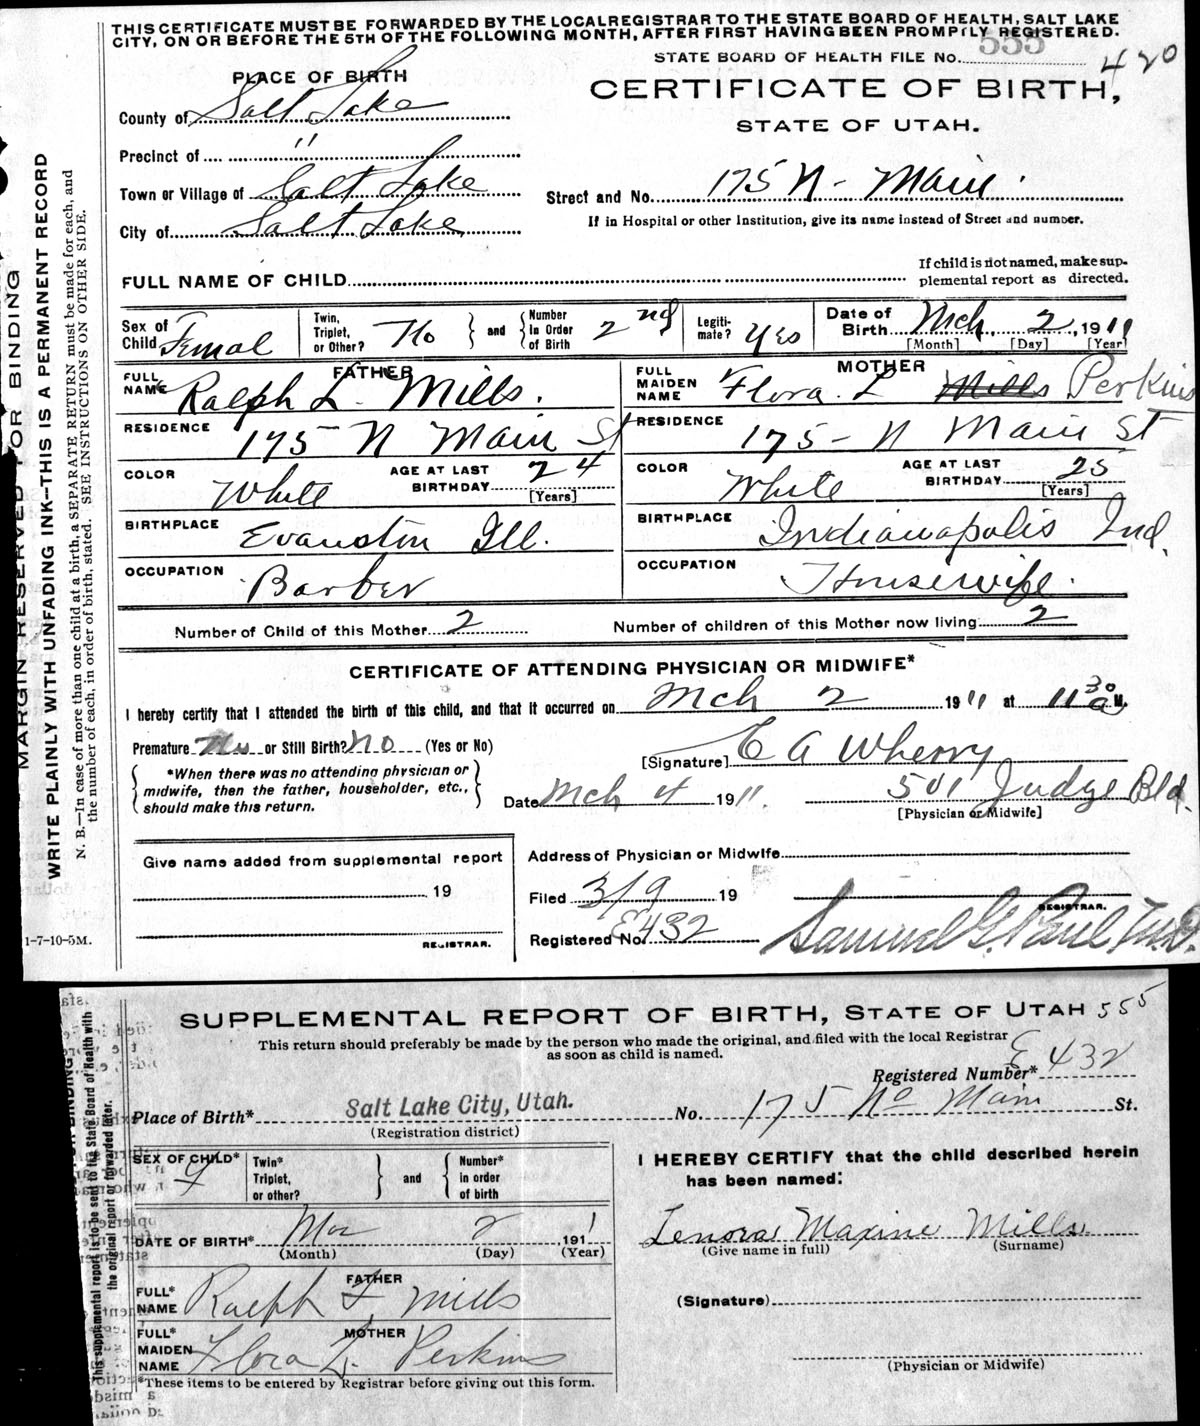 THIS CERTIFICATE MUST BE FORWARDED BY THE LOCAL REGISTRAR TO THE STATE BOARD OF HEALTH, SALT LAKE
CITY, ON OR BEFORE THE 5TH OF THE FOLLOWING MONTH, AFTER FIRST HAVING BEEN PROMPTLY REGISTERED.
STATE BOARD OF HEALTH FILE No. 555 420
PLACE OF BIRTH
CERTIFICATE OF BIRTH,
STATE OF UTAH.
County of Salt Lake
Precinct of "
Town or Village of Salt Lake
Street and No. 175 N - Main.
City of Salt Lake
If in Hospital or other Institution, give its name instead of Street and number.
FULL NAME OF CHILD
If child is not named, make sup-
plemental report as directed.
Sex of Child Femal
Twin, Triplet, or Other? No } and { Number in Order of Birth 2nd
Legiti-mate? Yes
Date of Birth Mch 2, 1911
[Month] [Day] [Year]
FATHER
FULL NAME Ralph L. Mills.
RESIDENCE 175 N Main St
COLOR White
AGE AT LAST BIRTHDAY 24
[Years]
BIRTHPLACE Evanston Ill.
OCCUPATION Barber
MOTHER
FULL MAIDEN NAME Flora L Mills Perkins
RESIDENCE 175 - N Main St
COLOR White
AGE AT LAST BIRTHDAY 25
[Years]
BIRTHPLACE Indianapolis Ind.
OCCUPATION Housewife.
Number of Child of this Mother 2
Number of children of this Mother now living 2
CERTIFICATE OF ATTENDING PHYSICIAN OR MIDWIFE*
I hereby certify that I attended the birth of this child, and that it occurred on Mch 2 1911 at 11 30 a M.
Premature No or Still Birth? No (Yes or No)
[Signature] C A Wherry
*When there was no attending physician or
midwife, then the father, householder, etc.,
should make this return.
Date Mch 4 1911.
501 Judge Bld.
[Physician or Midwife]
Give name added from supplemental report
19
REGISTRAR.
Address of Physician or Midwife
Filed 3/9 19
REGISTRAR.
Registered No. E432
Samuel G. Paul M.D.
MARGIN RESERVED FOR BINDING
WRITE PLAINLY WITH UNFADING INK—THIS IS A PERMANENT RECORD
N. B.—In case of more than one child at a birth, a SEPARATE RETURN must be made for each, and
the number of each, in order of birth, stated. SEE INSTRUCTIONS ON OTHER SIDE.
1-7-10-5M.
SUPPLEMENTAL REPORT OF BIRTH, STATE OF UTAH 555
This return should preferably be made by the person who made the original, and filed with the local Registrar
as soon as child is named.
Registered Number* E432
Place of Birth* Salt Lake City, Utah. No. 175 No Main St.
(Registration district)
SEX OF CHILD* f
Twin* Triplet, or other? } and { Number* in order of birth
I HEREBY CERTIFY that the child described herein
has been named:
DATE OF BIRTH* Mar 2 1911
(Month) (Day) (Year)
Lenora Maxine Mills
(Give name in full) (Surname)
FATHER
FULL* NAME Ralph F. Mills
(Signature)
MOTHER
FULL* MAIDEN NAME Flora L. Perkins
(Physician or Midwife)
*These items to be entered by Registrar before giving out this form.
This supplemental report is to be sent to the State Board of Health with
the original report or forwarded later.